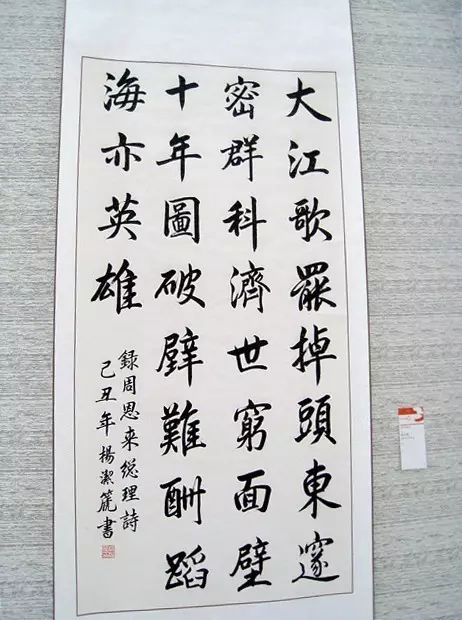 大江歌罷掉頭東邃
密群科濟世窮面壁
十年圖破壁難酬蹈
海亦英雄
錄周恩来総理詩
己丑年楊潔篪書